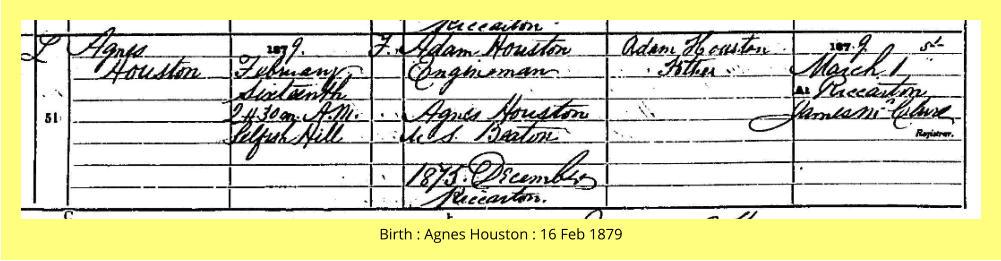 Riccarton.
L Agnes 1879. F. Adam Houston Adam Houston 1879.
Houston February Engineman Father March 1st
Sixteenth At Riccarton
51 2H 30m A.M. Agnes Houston James
Selfish Hill M. S. Beaton Registrar.
1875. December
Riccarton.
Birth : Agnes Houston : 16 Feb 1879